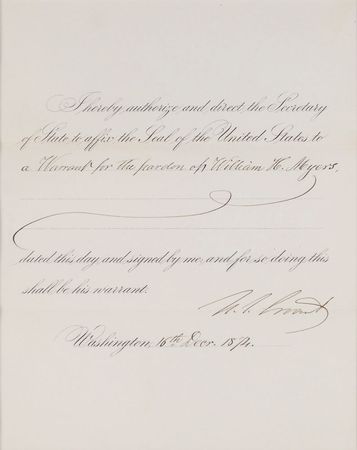 I hereby authorize and direct the Secretary
of State to affix the Seal of the United States to
a Warrant for the pardon of William H. Myers,
dated this day, and signed by me, and for so doing this
shall be his warrant.
U. S. Grant
Washington, 16th Decr. 1874.